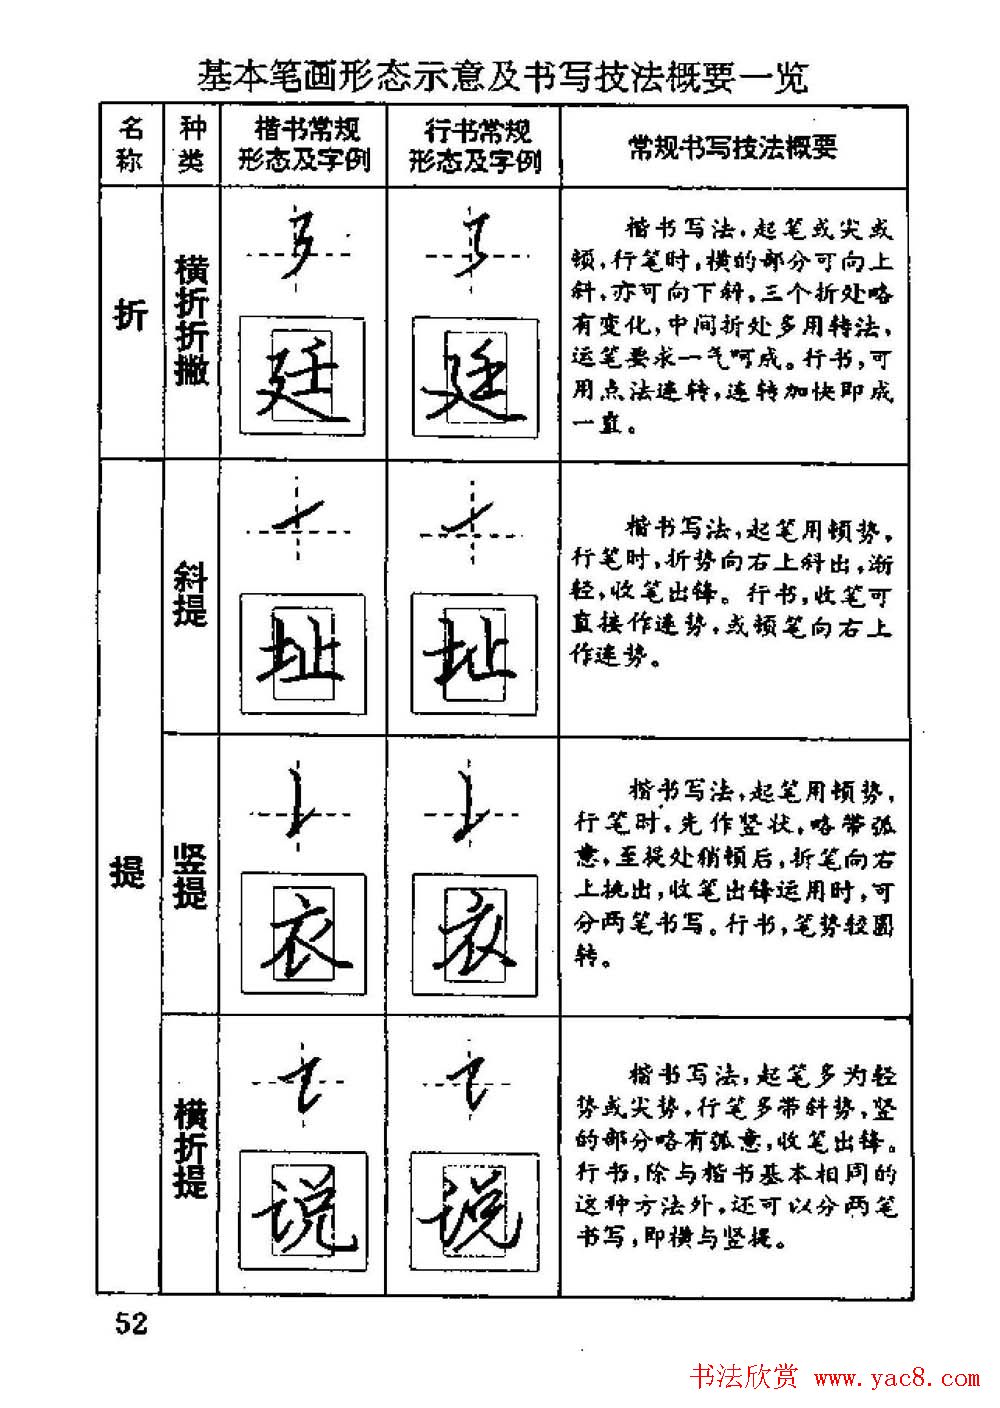 基本笔画形态示意及书写技法概要一览
名称
种类
楷书常规
形态及字例
行书常规
形态及字例
常规书写技法概要
折
横折折撇
廷
廷
楷书写法，起笔或尖或
顿，行笔时，横的部分可向上
斜，亦可向下斜，三个折处略
有变化，中间折处多用转法，
运笔要求一气呵成。行书，可
用点法连转，连转加快即成
一直。
提
斜提
址
址
楷书写法，起笔用顿势，
行笔时，折势向右上斜出，渐
轻，收笔出锋。行书，收笔可
直接作连势，或顿笔向右上
作连势。
竖提
衣
衣
楷书写法，起笔用顿势，
行笔时，先作竖状，略带弧
意，至提处稍顿后，折笔向右
上挑出，收笔出锋运用时，可
分两笔书写。行书，笔势较圆
转。
横折提
说
说
楷书写法，起笔多为轻
势或尖势，行笔多带斜势，竖
的部分略有弧意，收笔出锋。
行书，除与楷书基本相同的
这种方法外，还可以分两笔
书写，即横与竖提。
52
书法欣赏 www.yac8.com